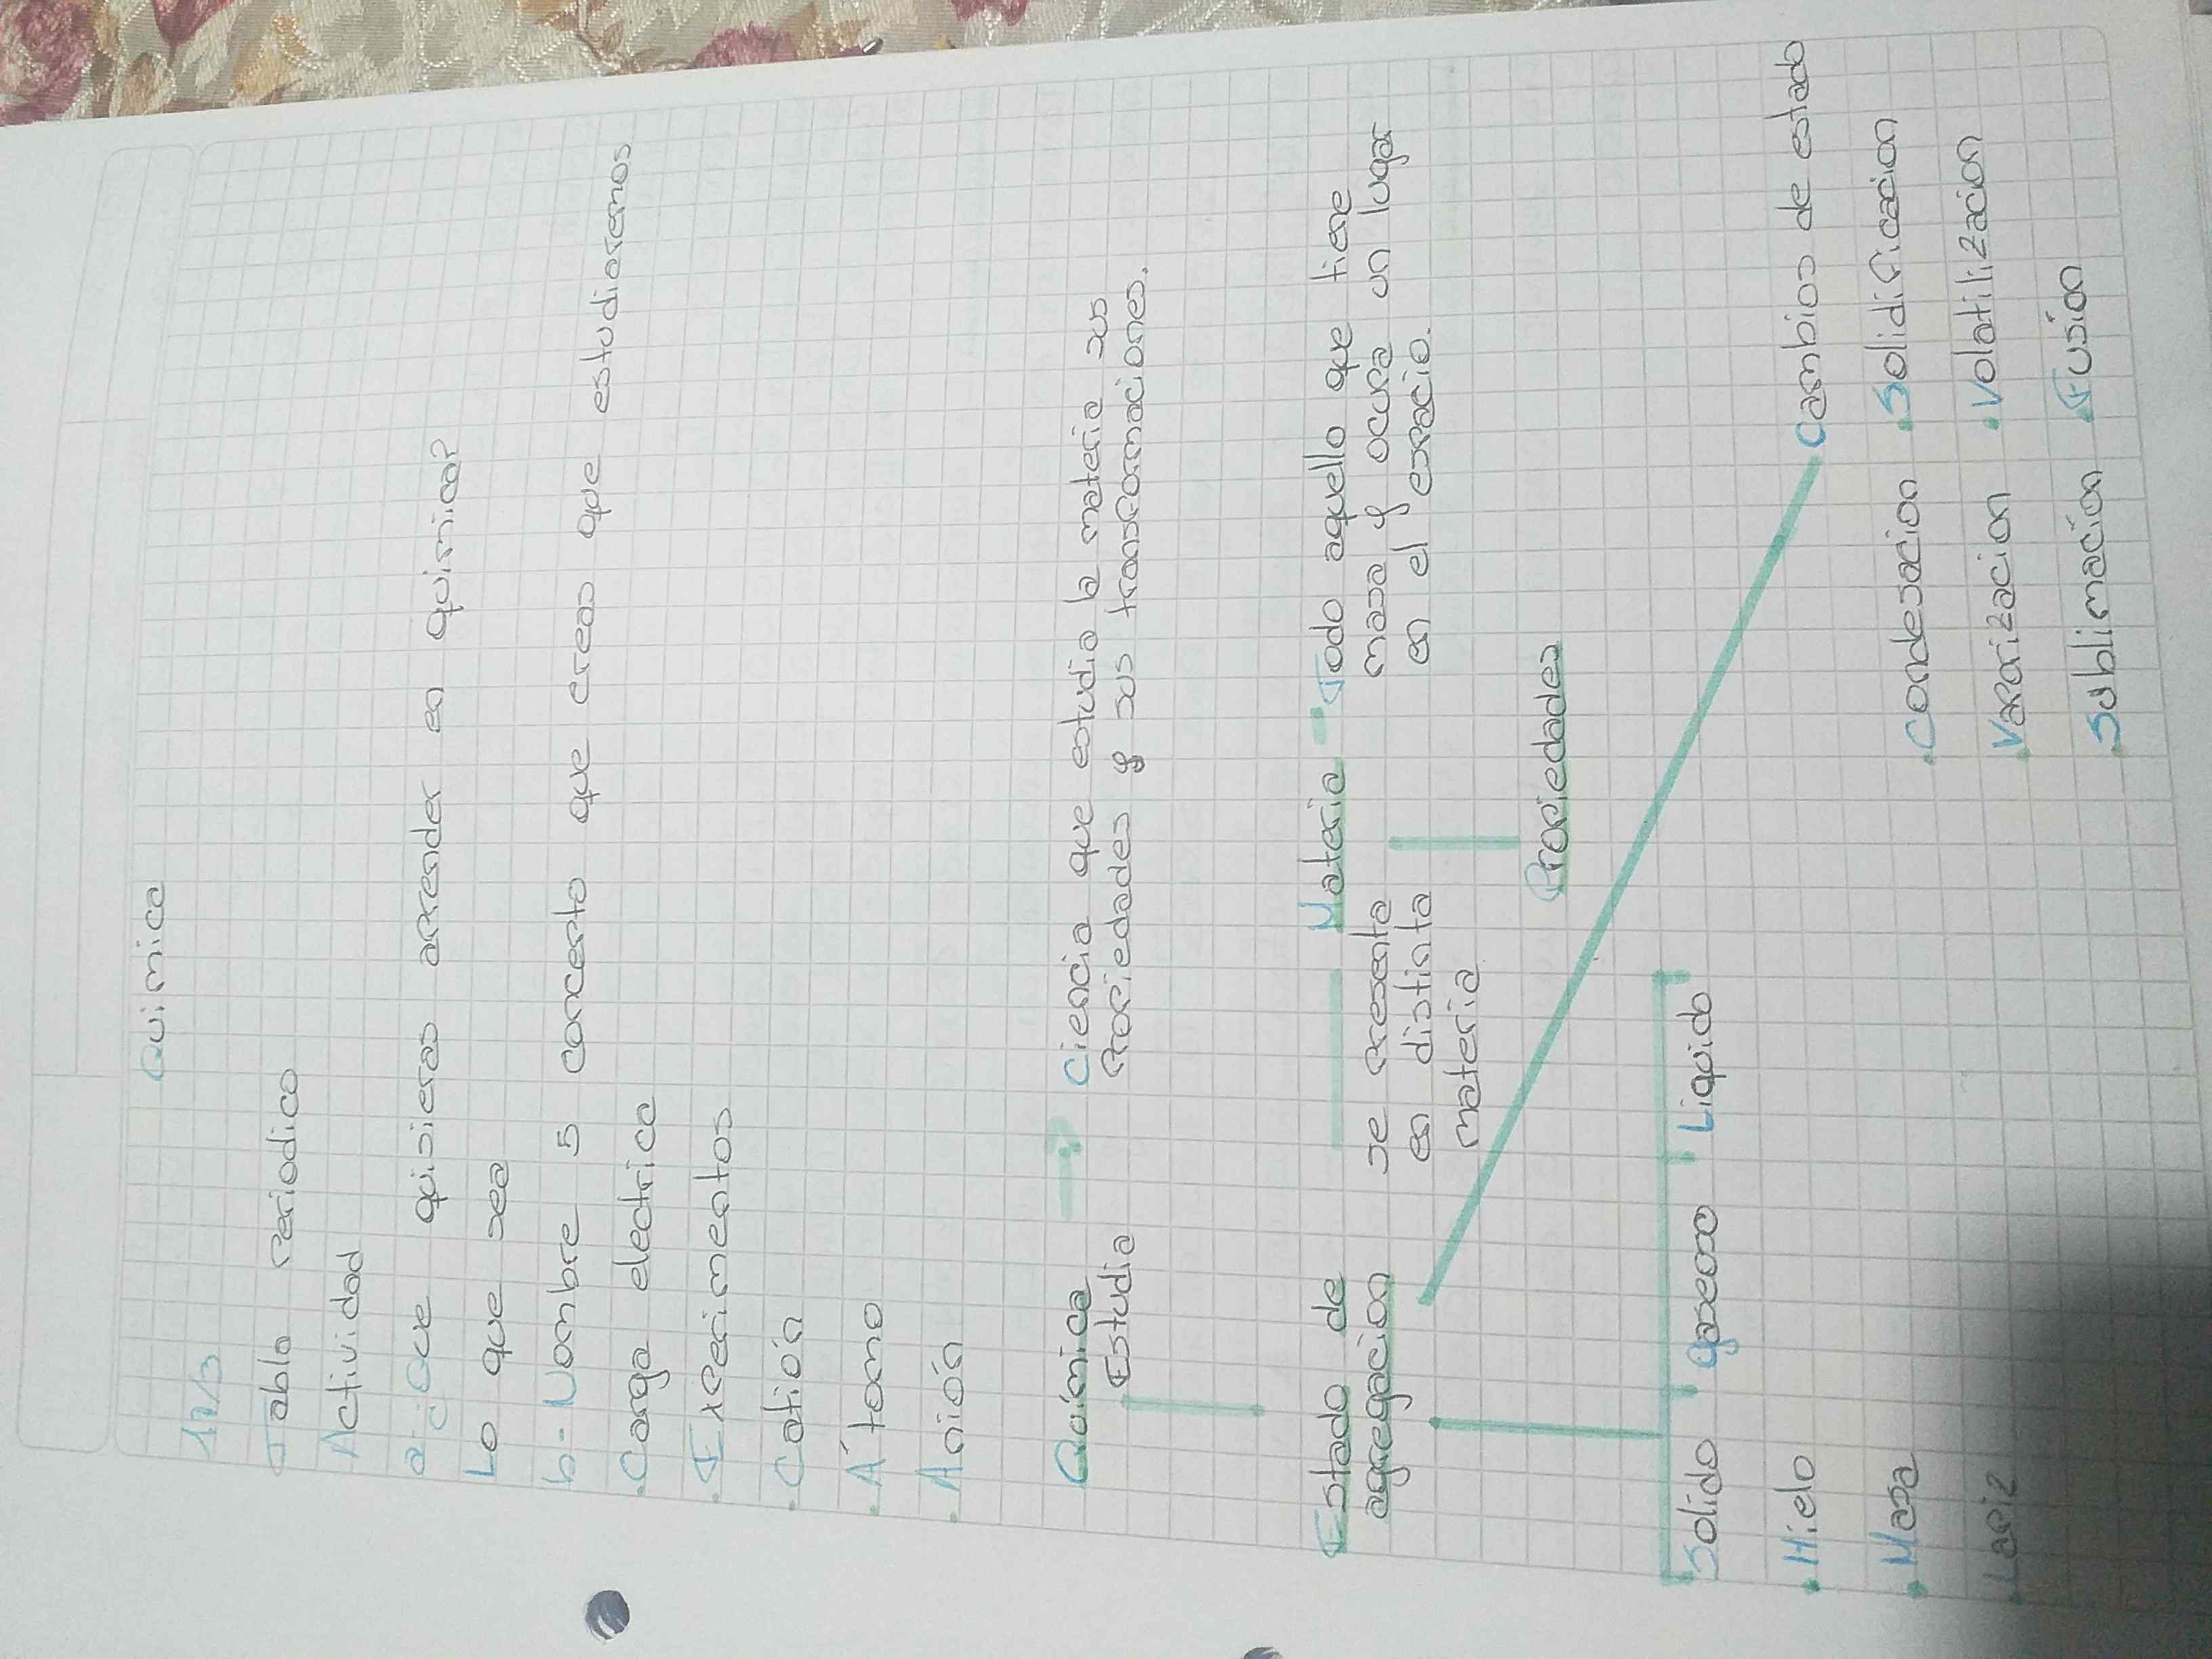 Quimica
17/3
Tabla Periodica
Actividad
a- ¿Que quisieras aprender en quimica?
Lo que sea
b- Nombre 5 concepto que creas que estudiaremos
. Carga electrica
. Experimentos
. Catión
. Átomo
. Anión
Química → Ciencia que estudia la materia sus
Estudia Propiedades y sus transformaciones.
Estado de — Materia - Todo aquello que tiene
agregacion se presenta masa y ocupa un lugar
en distinta en el espacio.
materia
Propiedades
Solido gaseoso Liquido
. Hielo Cambios de estado
. Mesa . Condesacion . Solidificacion
. Lapiz . Vaporizacion . Volatilizacion
. Sublimación . Fusion